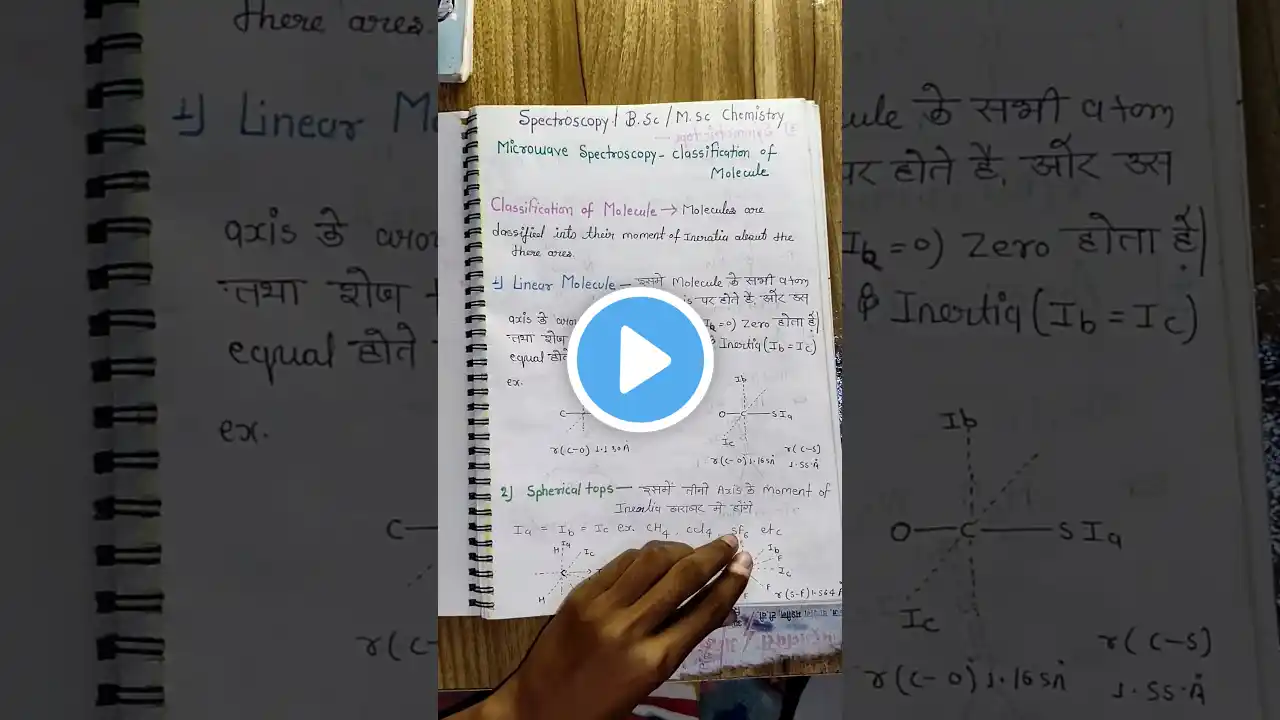 Spectroscopy / B.Sc / M.Sc Chemistry
Microwave Spectroscopy - classification of
Molecule
Classification of Molecule → Molecules are
classified into their moment of Ineratia about the
there ares.
1) Linear Molecule — इसमे Molecule के सभी atom
पर होते है, और उस
axis के (Ia = 0) Zero होता है|
तथा शेष Inertia (Ib = Ic)
equal होते
ex.
Ib
C
O C S Ia
Ic
r(C-O) 1.130Å
r(C-S)
r(C-O) 1.165Å 1.55.Å
2) Spherical tops — इसमें तीनो Axis के Moment of
Inertia बराबर मे होंगे
Ia = Ib = Ic ex. CH4, ccl4, sf6 etc
Ia
H Ic Ib
F
C Ic
H F
F r(S-F) 1.564 Å